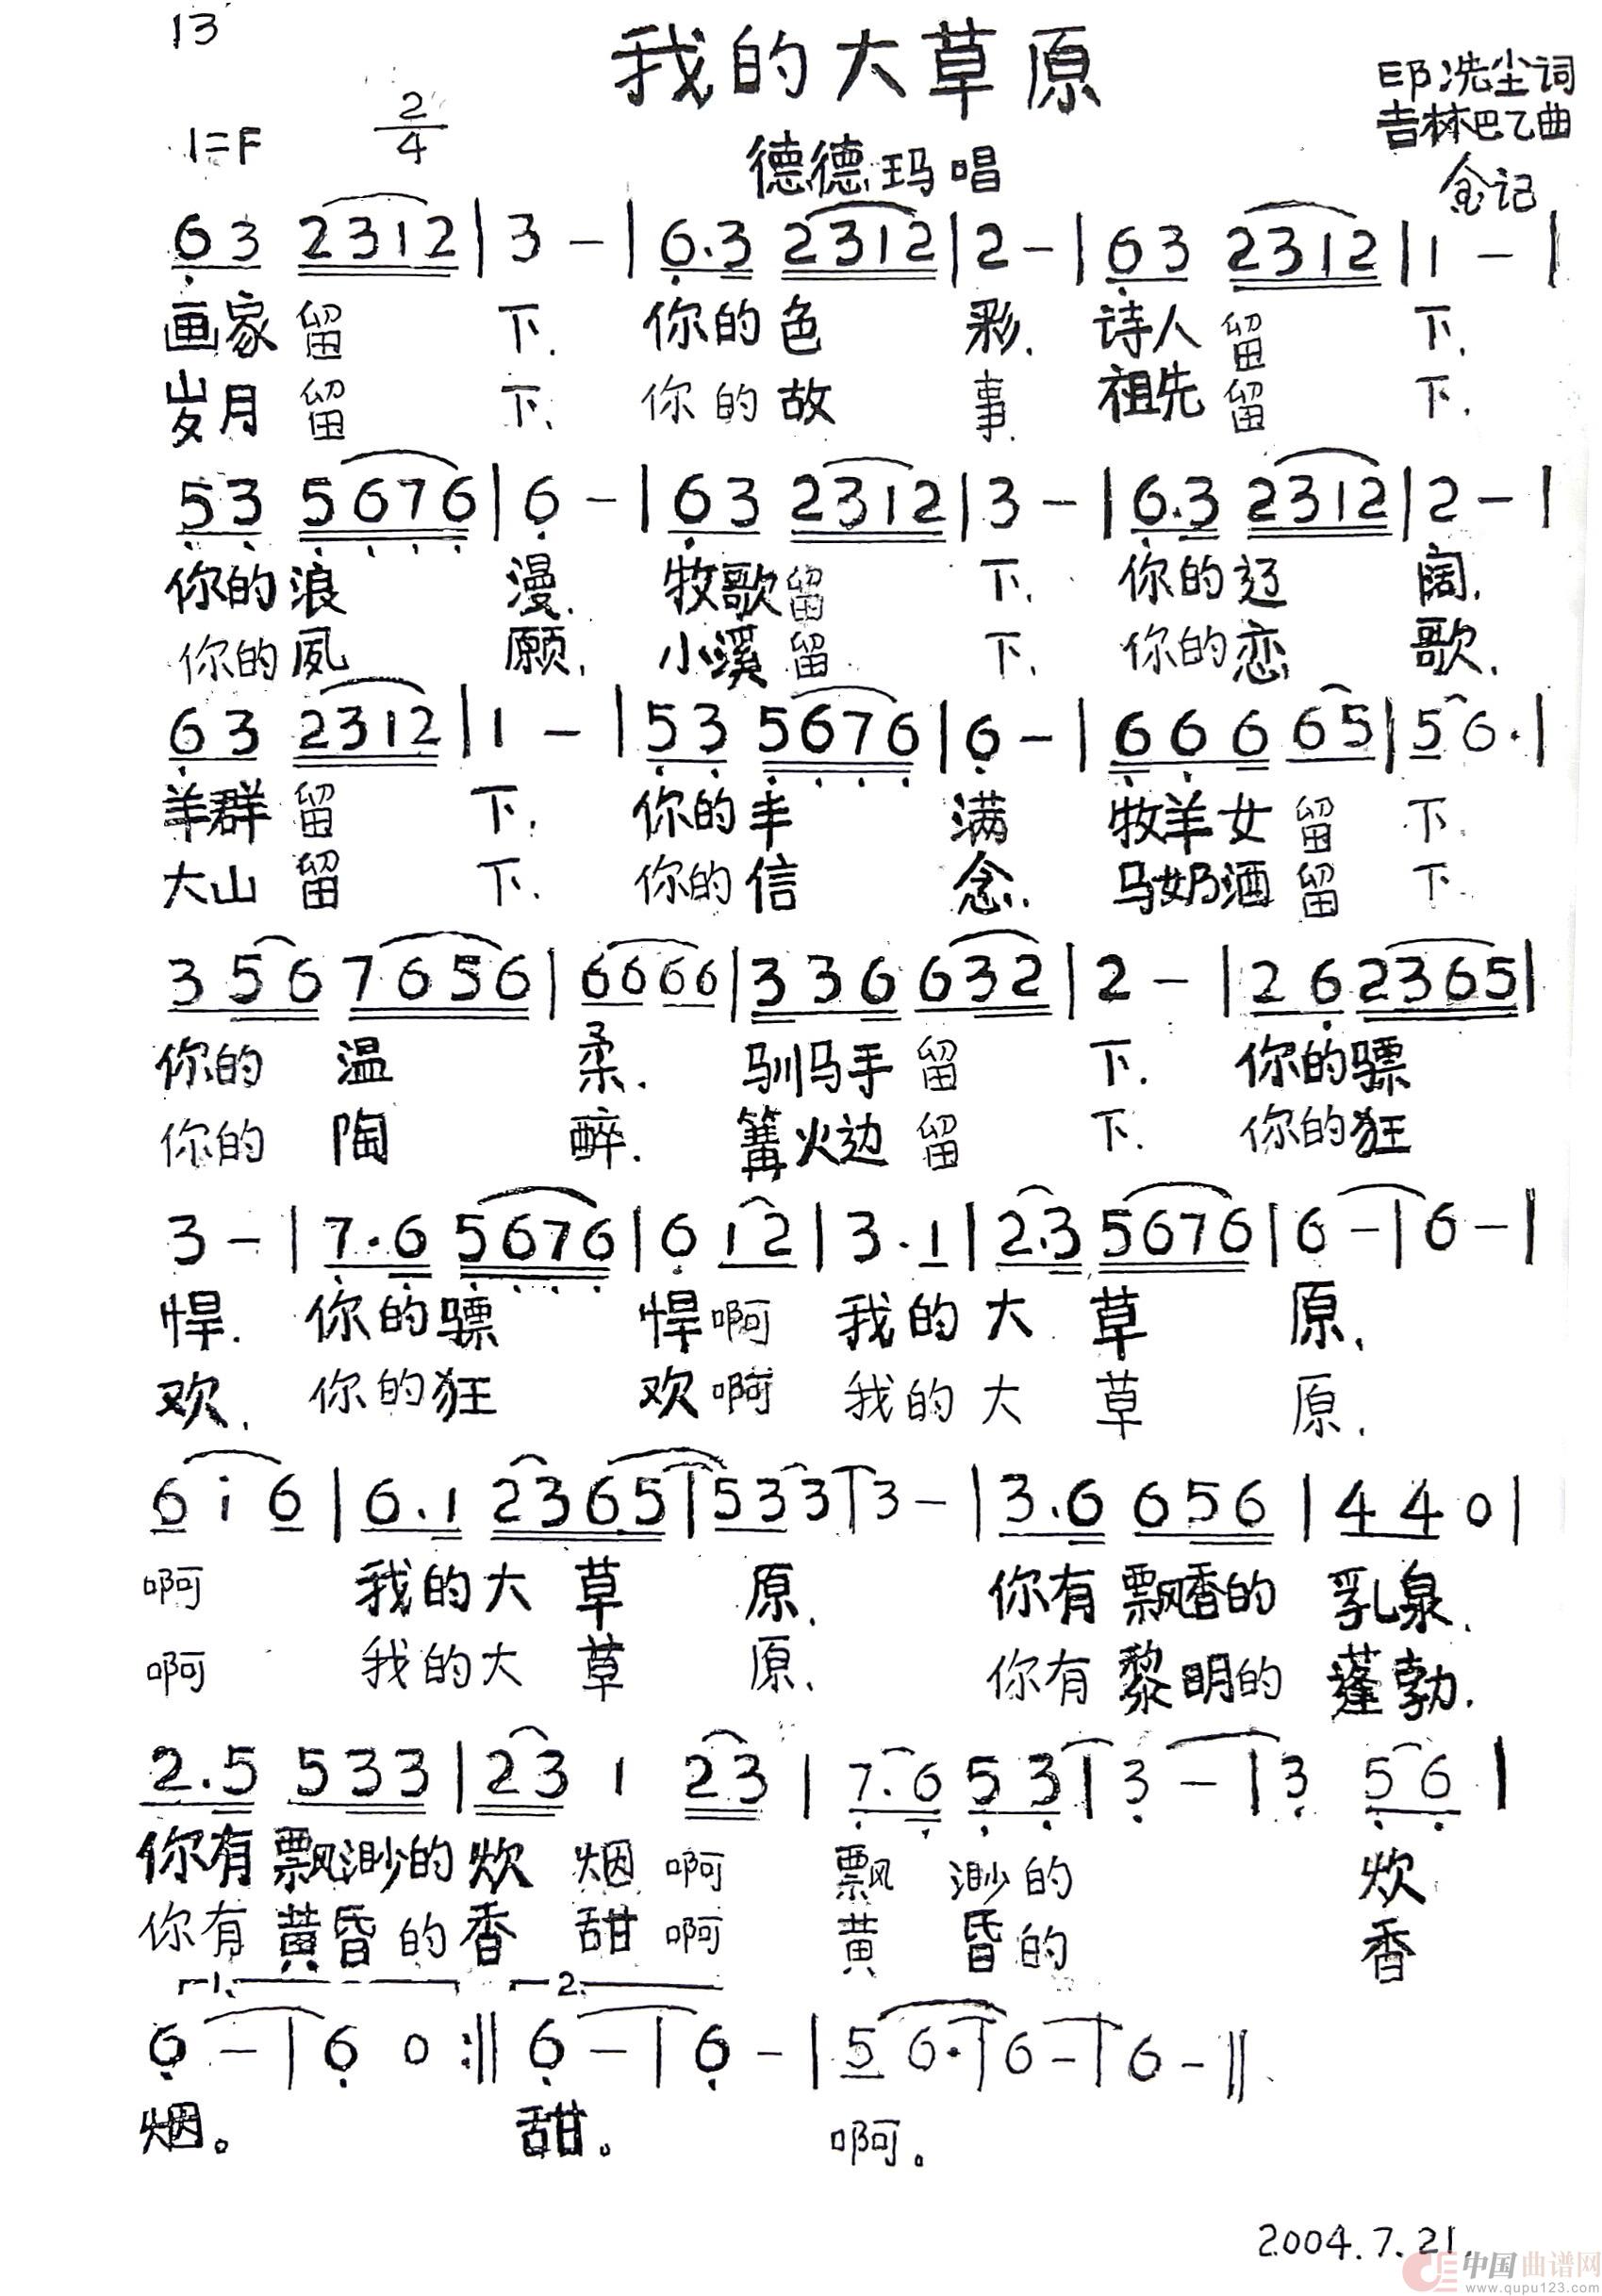 13
我的大草原
印洗尘词
1=F 2/4
吉林巴乙曲
德德玛唱
金记
63 2312 | 3 – | 6.3 2312 | 2 – | 63 2312 | 1 – |
画家留下.你的色彩.诗人留下.
岁月留下.你的故事.祖先留下.
53 5676 | 6 – | 63 2312 | 3 – | 6.3 2312 | 2 – |
你的浪漫.牧歌留下.你的辽阔.
你的夙愿.小溪留下.你的恋歌.
63 2312 | 1 – | 53 5676 | 6 – | 666 65 | 56. |
羊群留下.你的丰满 牧羊女留下.
大山留下.你的信念.马奶酒留下.
356 7656 | 6666 | 336 632 | 2 – | 26 2365 |
你的温柔.驯马手留下.你的骠
你的陶醉.篝火边留下.你的狂
3 – | 7.6 5676 | 6 12 | 3.1 | 2.3 5676 | 6 – | 6 – |
悍.你的骠悍啊 我的大草原.
欢.你的狂欢啊 我的大草原.
6 i 6 | 6.1 2365 | 533 | 3 – | 3.6 656 | 44 0 |
啊 我的大草原.你有飘香的乳泉.
啊 我的大草原.你有黎明的蓬勃.
2.5 533 | 23 1 23 | 7.6 53 | 3 – | 3 56 |
你有飘渺的炊烟啊 飘渺的炊
你有黄昏的香甜啊 黄昏的香
1. 2.
6 – | 6 0 :‖ 6 – | 6 – | 5 6. | 6 – | 6 – ‖
烟。 甜。 啊。
2004.7.21.
中国曲谱网
www.qupu123.com